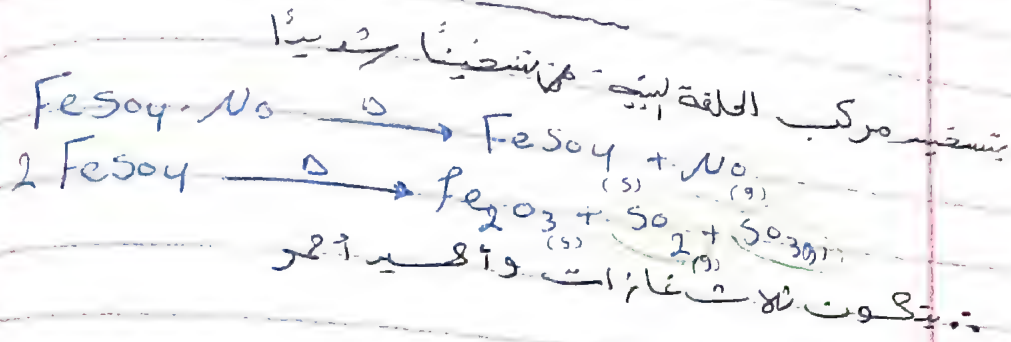 بتسخين مركب الحلقة البنية تسخينًا شديدًا
FeSO4 . NO —Δ→ FeSO4 (s) + NO (g)
2 FeSO4 —Δ→ Fe2O3 (s) + SO2 (g) + SO3(g)
∴ يتكون ثلاث غازات وأكسيد أحمر